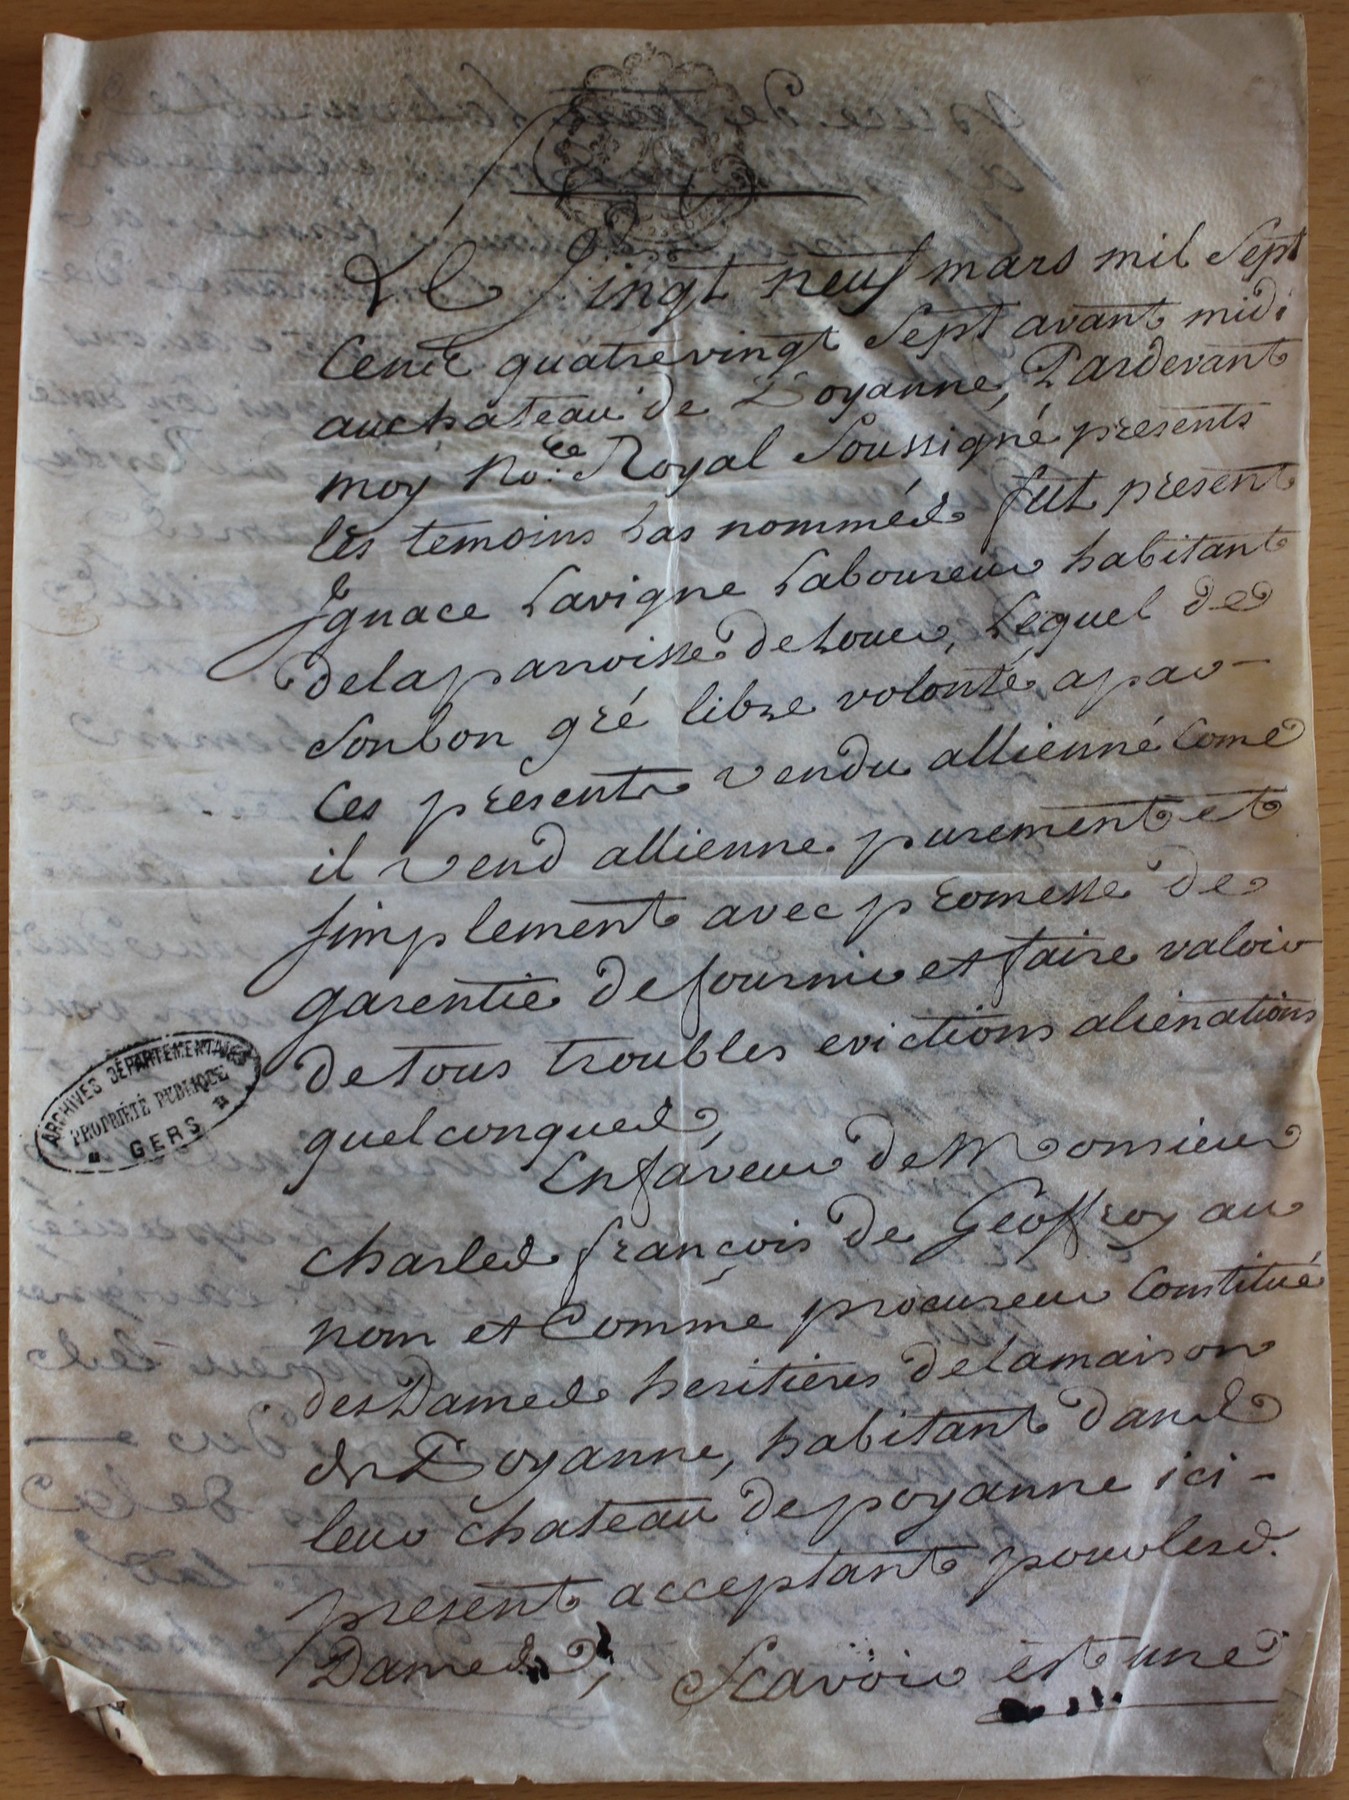 Le Vingt neuf mars mil Sept
Cent quatrevingt Sept avant midi
au chateau de Poyanne, Pardevant
moy No.re Royal Soussigné presents
les temoins bas nommés fut present
Ignace Lavigne Laboureur habitant
delaparroisse de Louer, Lequel de
Sonbon gré libre volonté, a par
Ces presentes vendu allienné Come
il vend allienne purement et
simplement avec promesse de
garentie de fournir et faire valoir
de tous troubles evictions alienations
quelconques,
En faveur de Monsieur
charles françois de Geoffroy au
nom et Comme procureur Constitué
des Dames heritieres delamaison
de Poyanne, habitant dans
leur chateau de poyanne ici -
present acceptant pour lesd.
Dames, Scavoir est une
ARCHIVES DÉPARTEMENTALES
PROPRIÉTÉ PUBLIQUE
GERS